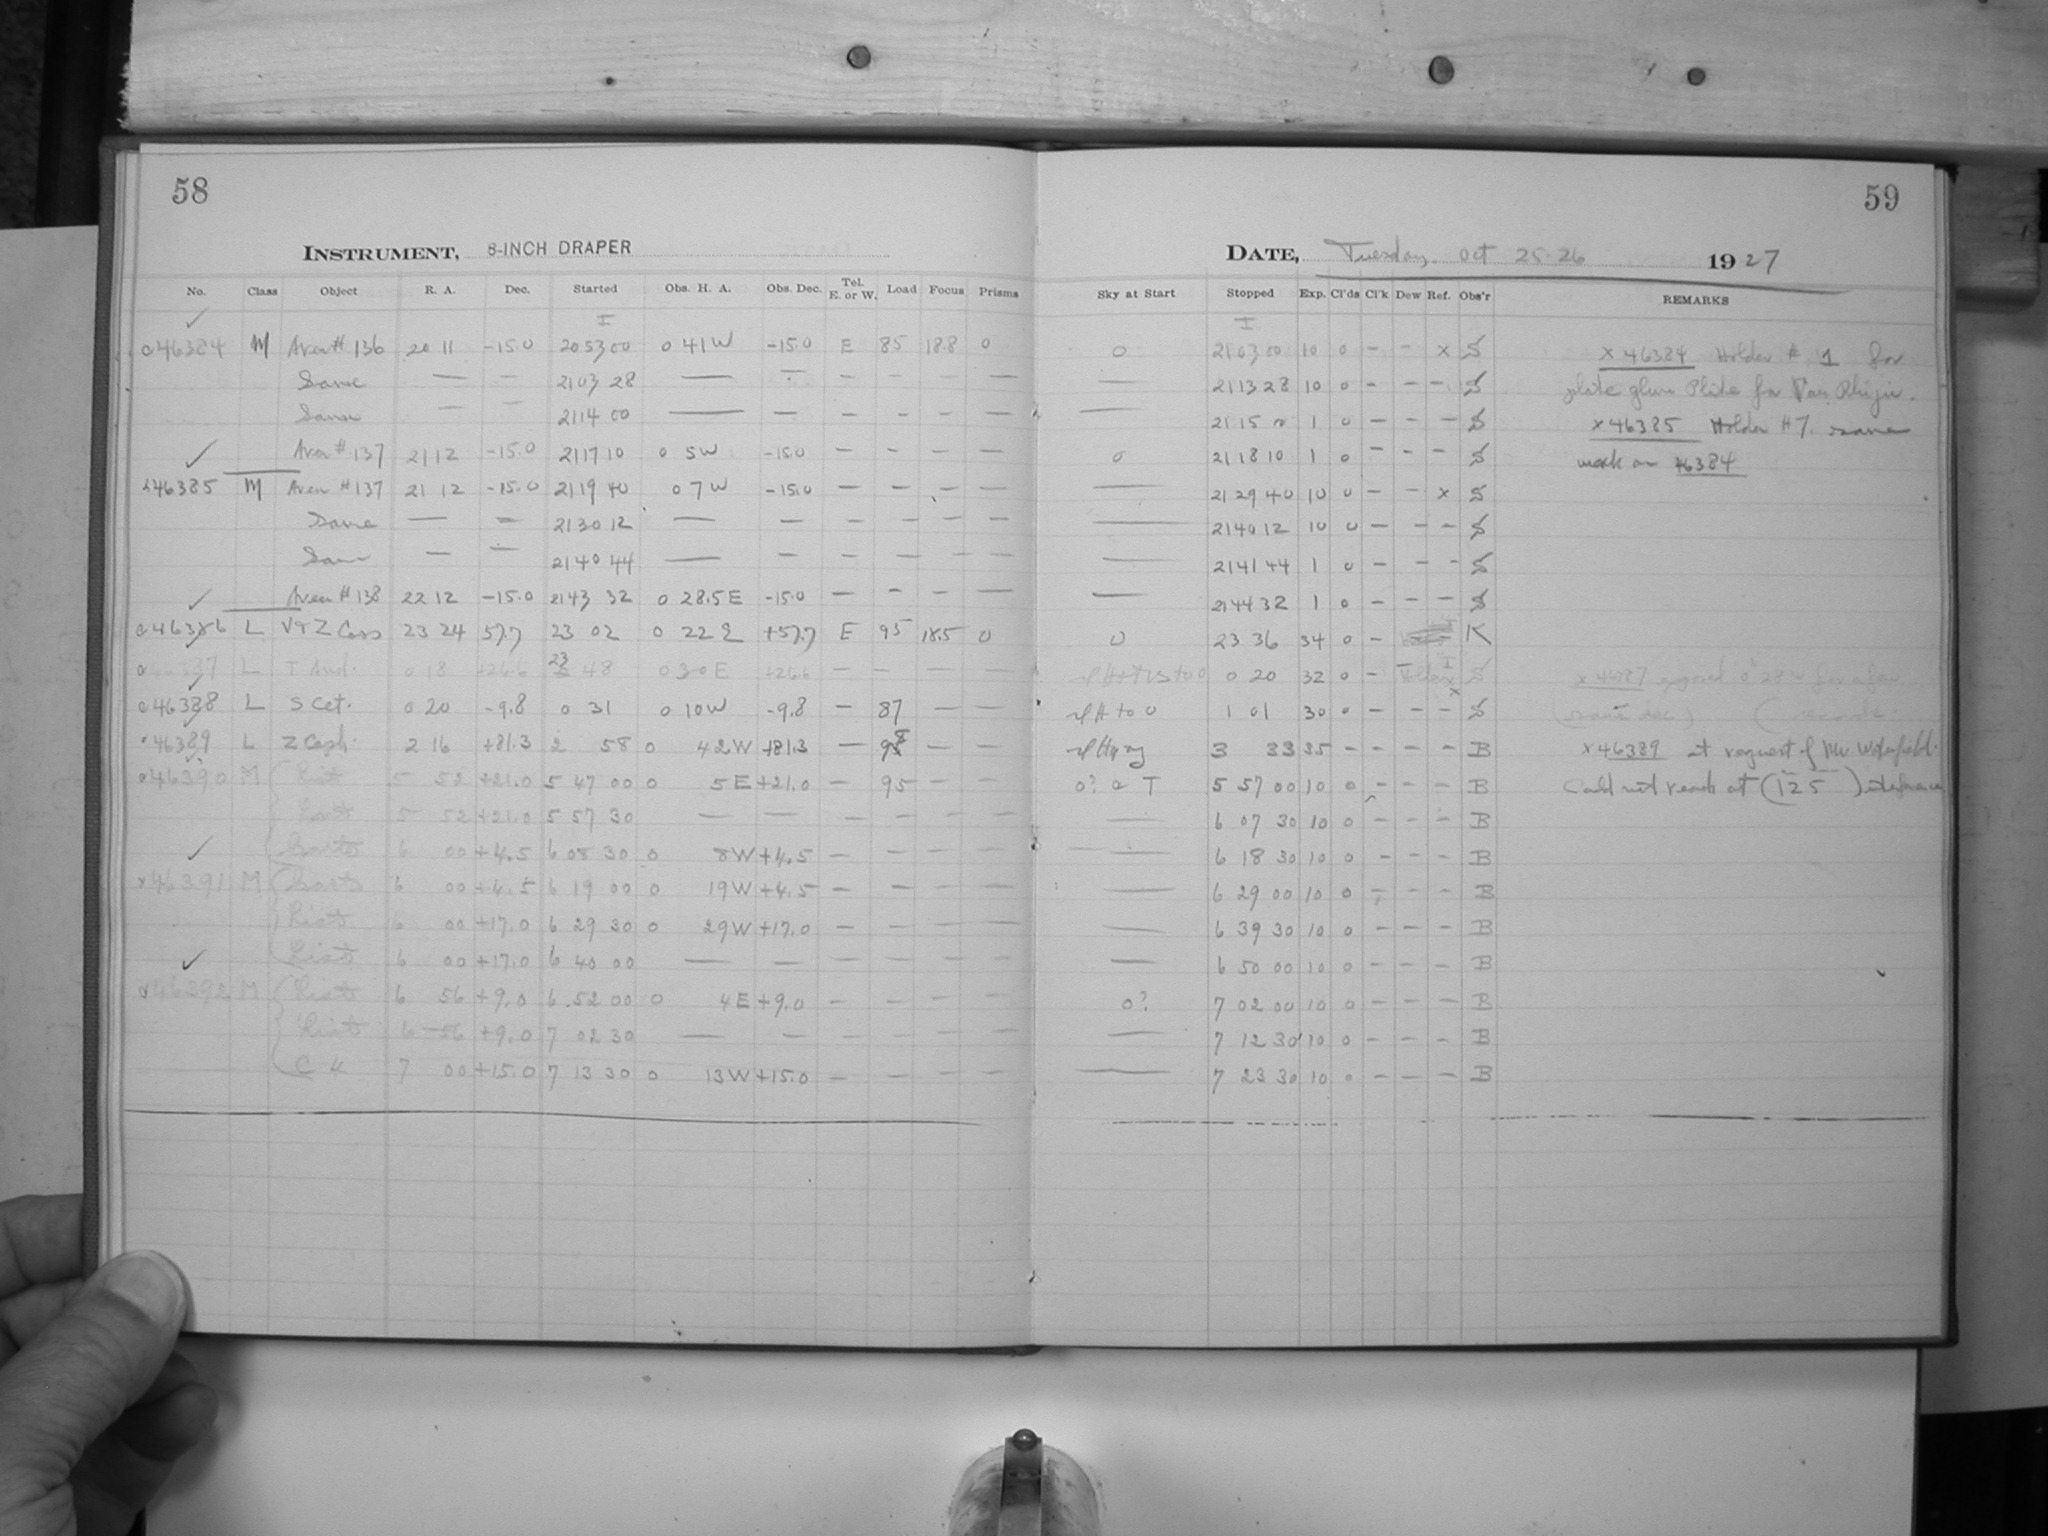 58
59
INSTRUMENT, 8-INCH DRAPER
DATE, Tuesday Oct 25-26 1927
No. Class Object R. A. Dec. Started Obs. H. A. Obs. Dec. Tel. E. or W. Load Focus Prisms Sky at Start Stopped Exp. Cl'ds Cl'k Dew Ref. Obs'r REMARKS
46384 M Area # 136 20 11 -15.0 20 53 00 0 41 W -15.0 E 85 18.8 0 0 21 03 00 10 0 - - x S x 46384 Holder # 1 for
Same — — 21 03 28 — — — — — — — 21 13 28 10 0 - - - S plate glass Plate for Van Rhijn.
Same — — 21 14 00 — — — — — — — 21 15 1 0 - - - S x 46385 Holder # 7. same
Area # 137 21 12 -15.0 21 17 10 0 5 W -15.0 — — — — 0 21 18 10 1 0 - - - S mark on 46384
46385 M Area # 137 21 12 -15.0 21 19 40 0 7 W -15.0 — — — — — 21 29 40 10 0 - - x S
Same — — 21 30 12 — — — — — — — 21 40 12 10 0 - - - S
Same — — 21 40 44 — — — — — — — 21 41 44 1 0 - - - S
Area # 138 22 12 -15.0 21 43 32 0 28.5 E -15.0 — — — — — 21 44 32 1 0 - - - S
46386 L V+Z Cass 23 24 57.7 23 02 0 22 E +57.7 E 95 18.5 0 0 23 36 34 0 - K
L T And. 0 18 +26.6 23 48 0 30 E +26.6 — — — — 0 20 32 0 - S x 46387
46388 L S Cet. 0 20 -9.8 0 31 0 10 W -9.8 — 87 — — 1 01 30 0 - - - S
46389 L Z Ceph. 2 16 +81.3 2 58 0 42 W +81.3 — 98 — — 3 33 35 - - - - B x 46389 at request of Mr. Waterfield.
46390 M 5 52 +21.0 5 47 00 0 5 E +21.0 — 95 — — 0? a T 5 57 00 10 0 - - - B Could not reach at (125)
5 52 +21.0 5 57 30 — — — — — — — 6 07 30 10 0 - - - B
6 00 +4.5 6 08 30 0 8 W +4.5 — — — — — 6 18 30 10 0 - - - B
46391 M 6 00 +4.5 6 19 00 0 19 W +4.5 — — — — — 6 29 00 10 0 - - - B
6 00 +17.0 6 29 30 0 29 W +17.0 — — — — — 6 39 30 10 0 - - - B
6 00 +17.0 6 40 00 — — — — — — — 6 50 00 10 0 - - - B
46392 M 6 56 +9.0 6 52 00 0 4 E +9.0 — — — — 0? 7 02 00 10 0 - - - B
6 56 +9.0 7 02 30 — — — — — — — 7 12 30 10 0 - - - B
7 00 +15.0 7 13 30 0 13 W +15.0 — — — — — 7 23 30 10 0 - - - B